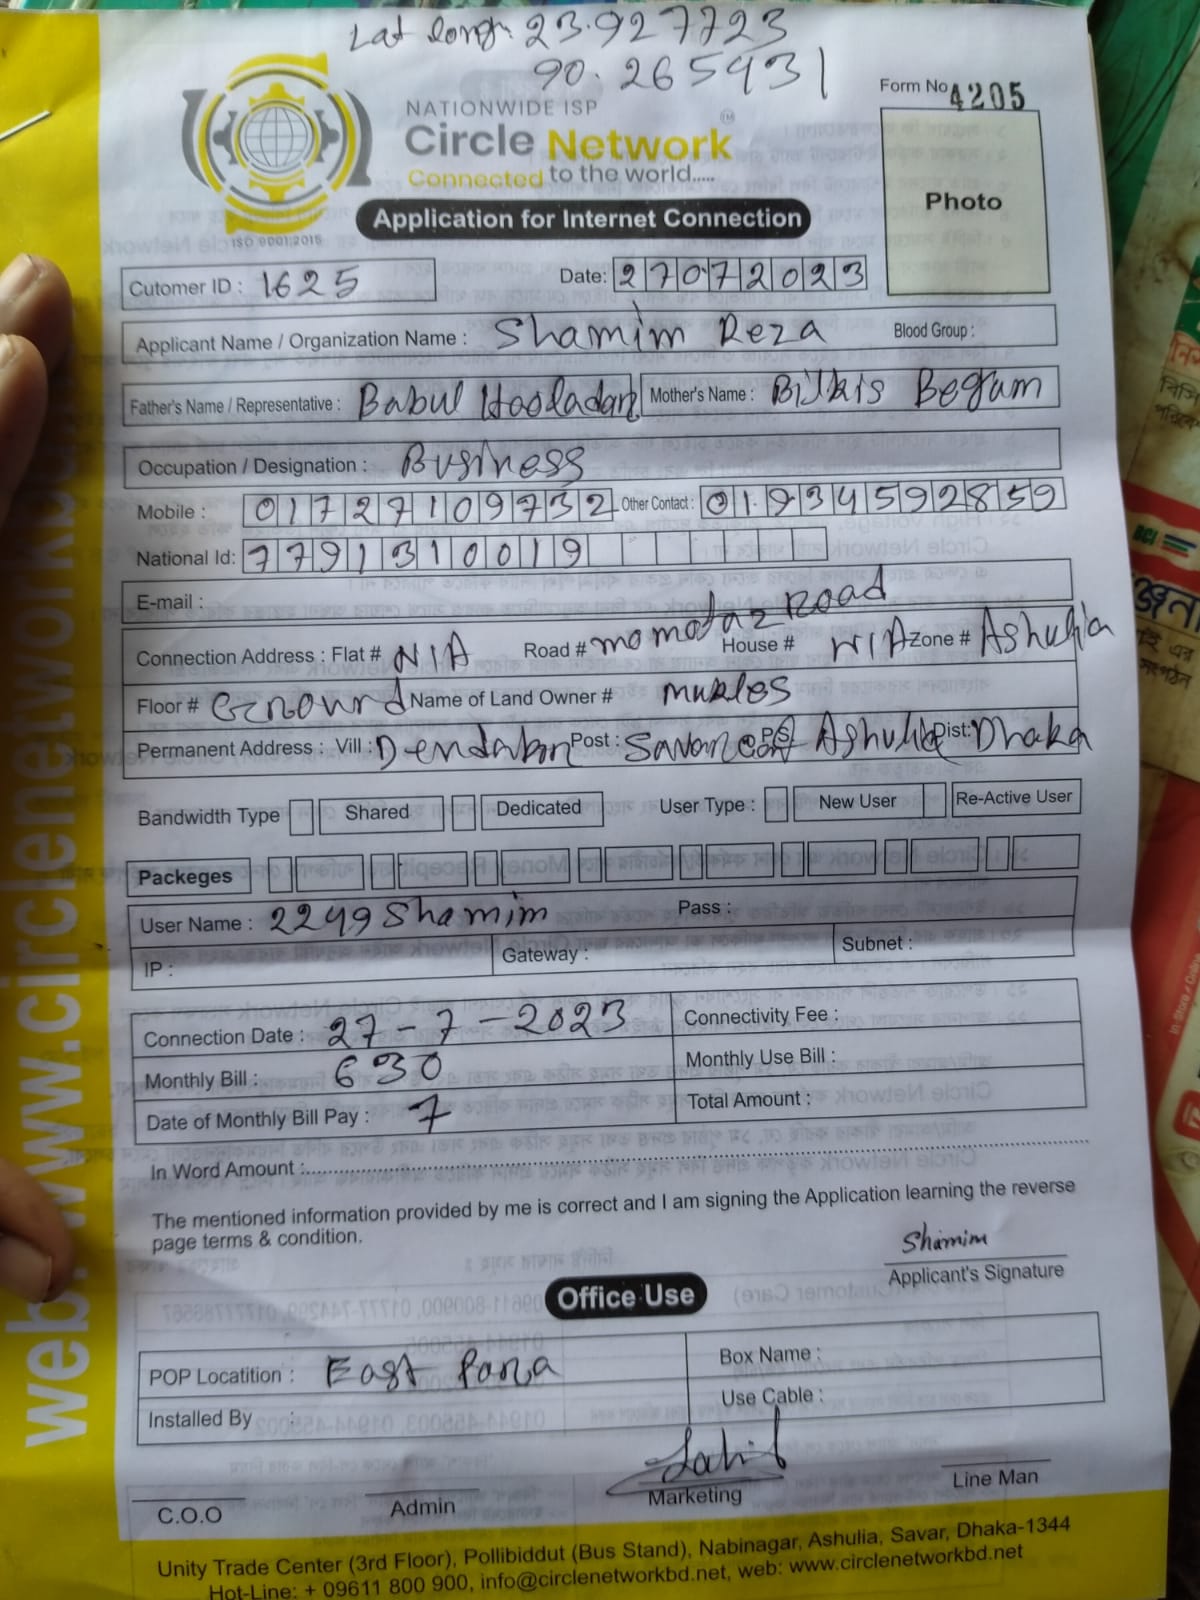 Lat long: 23.927723
90.265931
Form No 4205
NATIONWIDE ISP
Circle Network TM
Connected to the world.....
Photo
Application for Internet Connection
ISO 9001:2015
Cutomer ID : 1625 Date: 27072023
Applicant Name / Organization Name : Shamim Reza Blood Group :
Father's Name / Representative : Babul Haoladar Mother's Name : Bilkis Begam
Occupation / Designation : Business
Mobile : 01727109732 Other Contact : 01934592859
National Id: 7791310019
E-mail :
Connection Address : Flat # N/A Road # momotaz Road House # N/A Zone # Ashulia
Floor # Ground Name of Land Owner # Mukles
Permanent Address : Vill : Dendabor Post : Savar cant P.S Ashulia Dist: Dhaka
Bandwidth Type Shared Dedicated User Type : New User Re-Active User
Packeges
User Name : 2249Shamim Pass :
IP : Gateway : Subnet :
Connection Date : 27-7-2023 Connectivity Fee :
Monthly Bill : 630 Monthly Use Bill :
Date of Monthly Bill Pay : 7 Total Amount :
In Word Amount :
The mentioned information provided by me is correct and I am signing the Application learning the reverse
page terms & condition.
Shamim
Applicant's Signature
Office Use
POP Locatition : East Para Box Name :
Installed By : Use Cable :
C.O.O Admin Marketing Line Man
Unity Trade Center (3rd Floor), Pollibiddut (Bus Stand), Nabinagar, Ashulia, Savar, Dhaka-1344
Hot-Line: + 09611 800 900, info@circlenetworkbd.net, web: www.circlenetworkbd.net